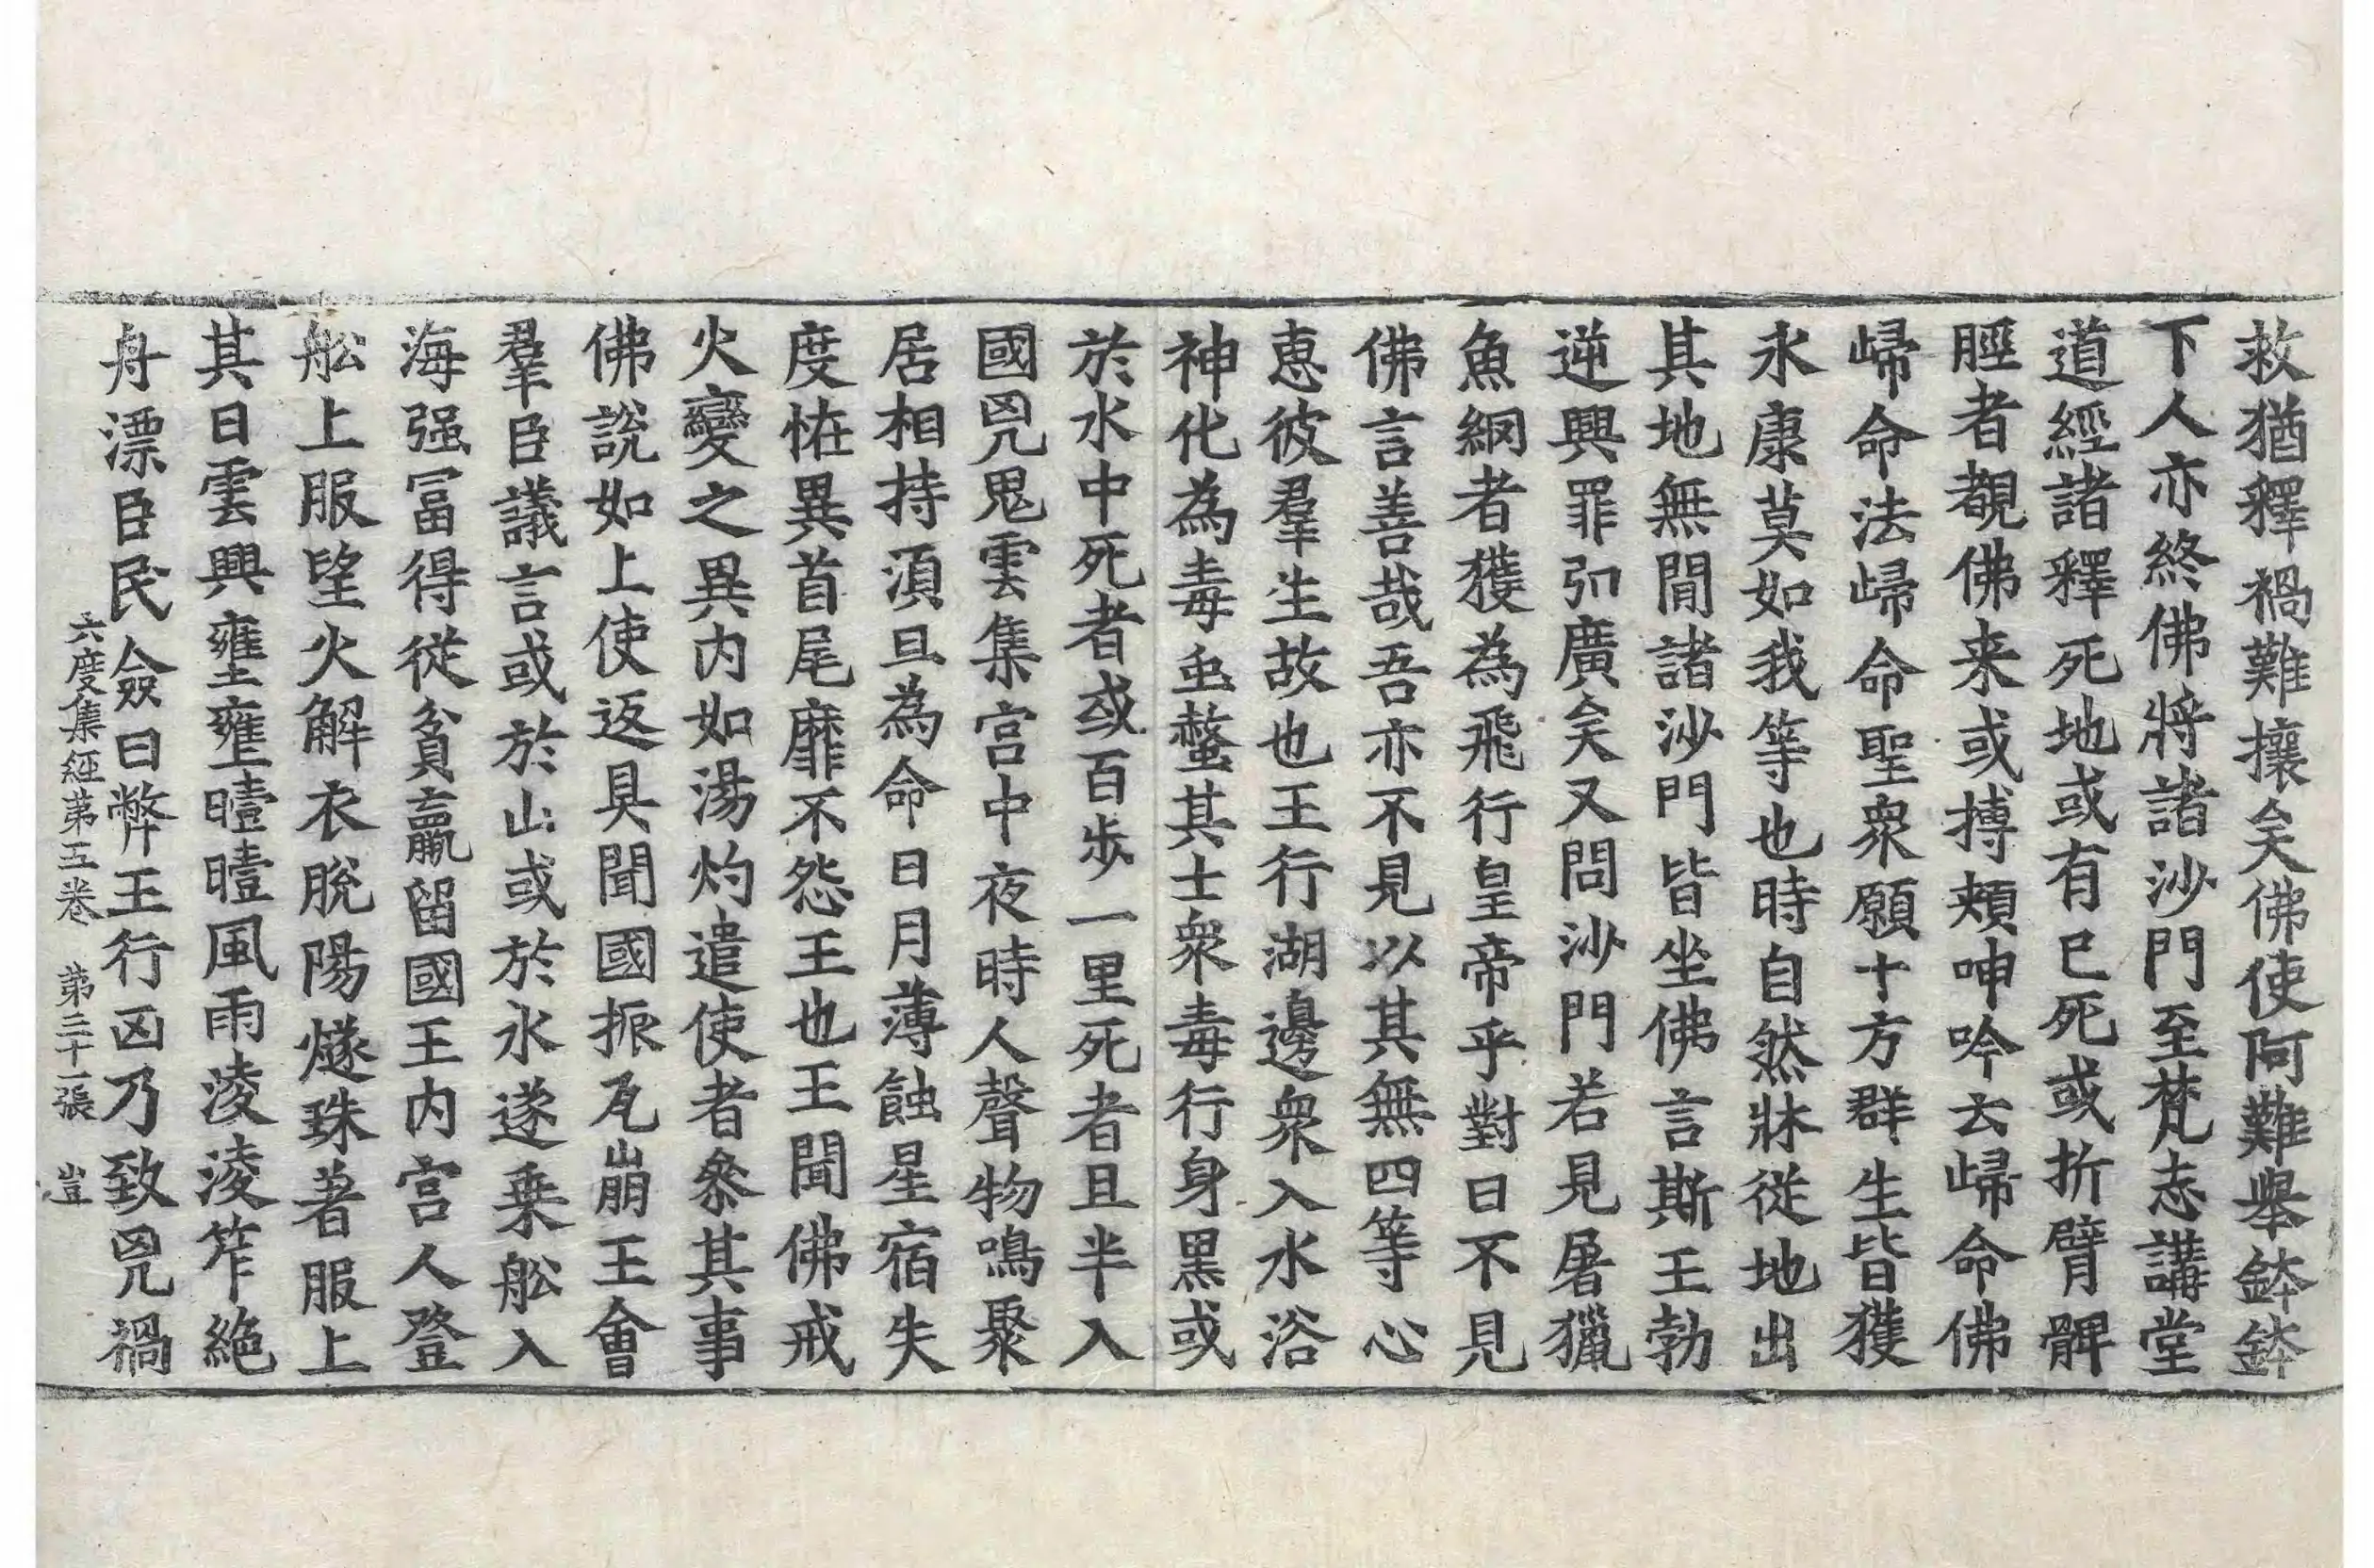 救猶釋禍難攘矣佛使阿難舉鉢鉢
下人亦終佛將諸沙門至梵志講堂
道經諸釋死地或有已死或折臂髀
脛者覩佛来或搏頰呻吟云歸命佛
歸命法歸命聖衆願十方群生皆獲
永康莫如我等也時自然牀從地出
其地無閒諸沙門皆坐佛言斯王勃
逆興罪弘廣矣又問沙門若見屠獵
魚網者獲為飛行皇帝乎對曰不見
佛言善哉吾亦不見以其無四等心
恵彼羣生故也王行湖邊衆入水浴
神化為毒虫螫其士衆毒行身黑或
於水中死者或百步一里死者且半入
國兇鬼雲集宮中夜時人聲物鳴聚
居相持須旦為命日月薄蝕星宿失
度恠異首尾靡不怨王也王聞佛戒
火變之異内如湯灼遣使者叅其事
佛說如上使返具聞國振瓦崩王會
羣臣議言或於山或於水遂乗舩入
海强冨得從貧羸留國王内宮人登
舩上服望火解衣脫陽燧珠著服上
其日雲興壅壅曀曀風雨淩淩笮絶
舟漂臣民僉曰弊王行凶乃致兇禍
六度集經第五卷　第三十一張　豈